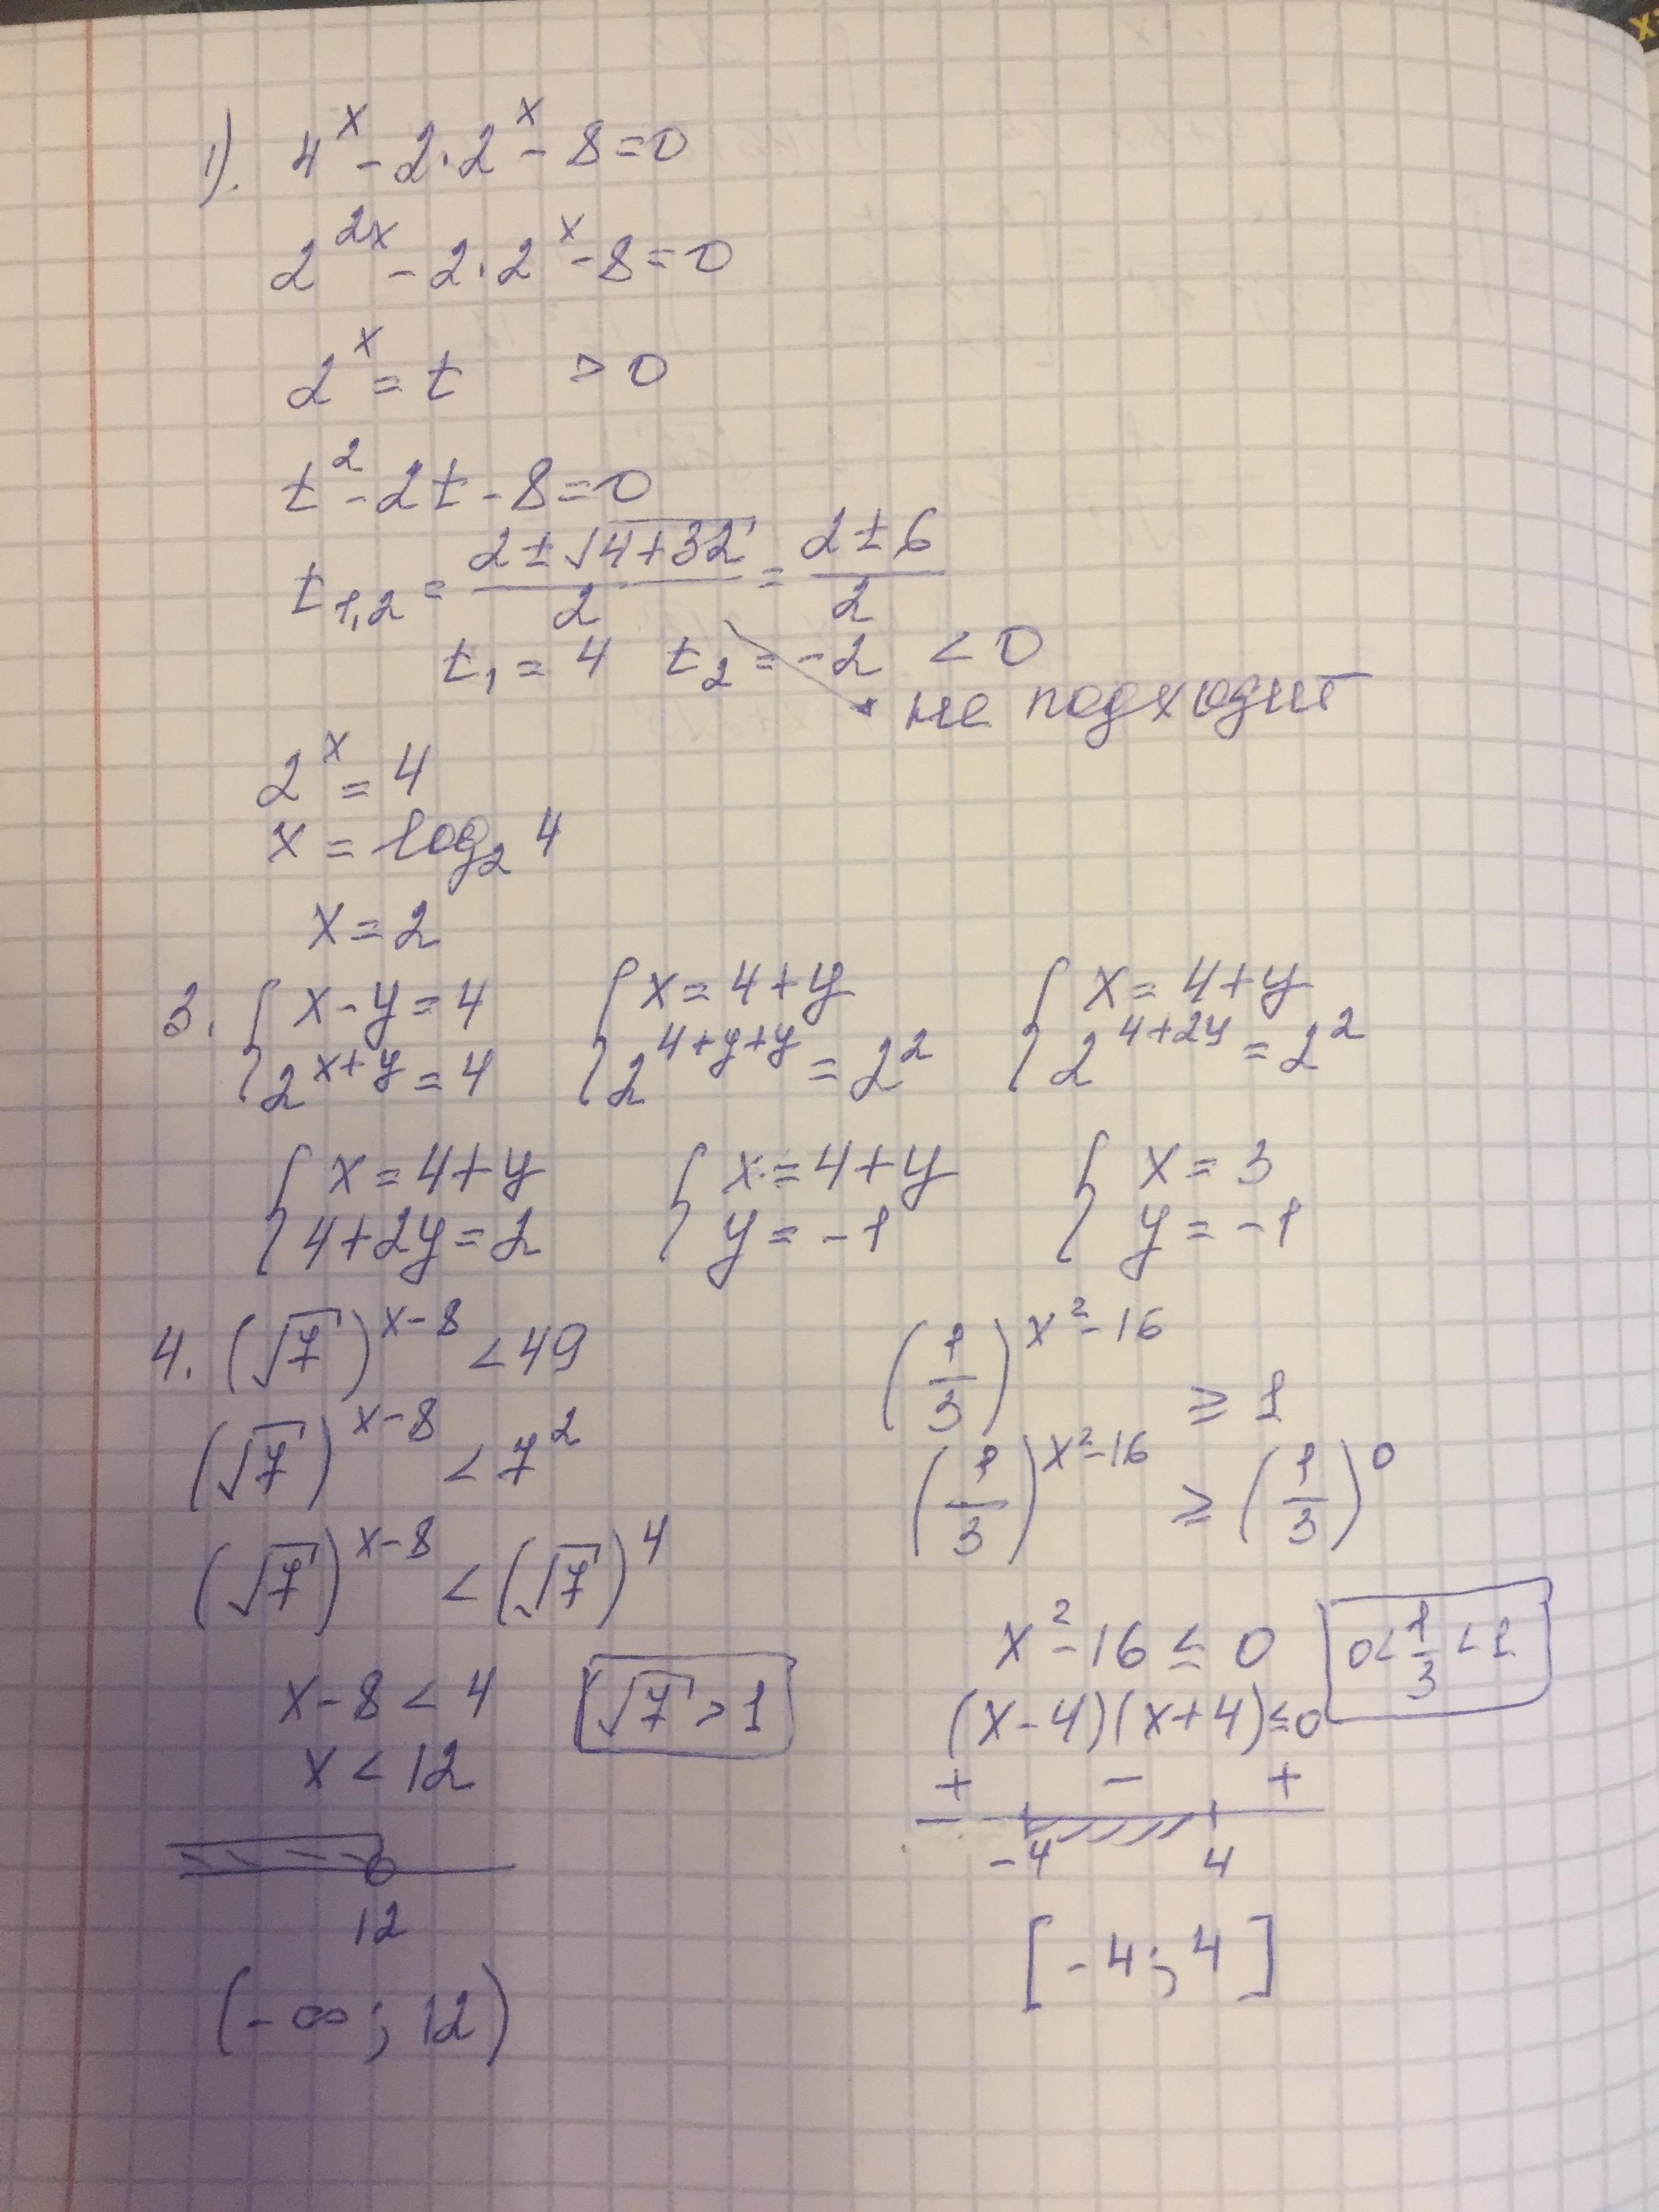 1). 4^x - 2·2^x - 8 = 0
2^{2x} - 2·2^x - 8 = 0
2^x = t > 0
t^2 - 2t - 8 = 0
t_{1,2} = \frac{2±√(4+32)}{2} = \frac{2±6}{2}
t_1 = 4 t_2 = -2 < 0
не подходит
2^x = 4
x = log_2 4
x = 2
3. { x - y = 4 { x = 4+y { x = 4+y
{ 2^{x+y} = 4 { 2^{4+y+y} = 2^2 { 2^{4+2y} = 2^2
{ x = 4+y { x = 4+y { x = 3
{ 4+2y = 2 { y = -1 { y = -1
4. (√7)^{x-8} < 49
(√7)^{x-8} < 7^2
(√7)^{x-8} < (√7)^4
x - 8 < 4 √7 > 1
x < 12
12
(-∞; 12)
(\frac{1}{3})^{x^2-16} ≥ 1
(\frac{1}{3})^{x^2-16} ≥ (\frac{1}{3})^0
x^2 - 16 ≤ 0 0 < \frac{1}{3} < 1
(x-4)(x+4) ≤ 0
+ - +
-4 4
[-4; 4]